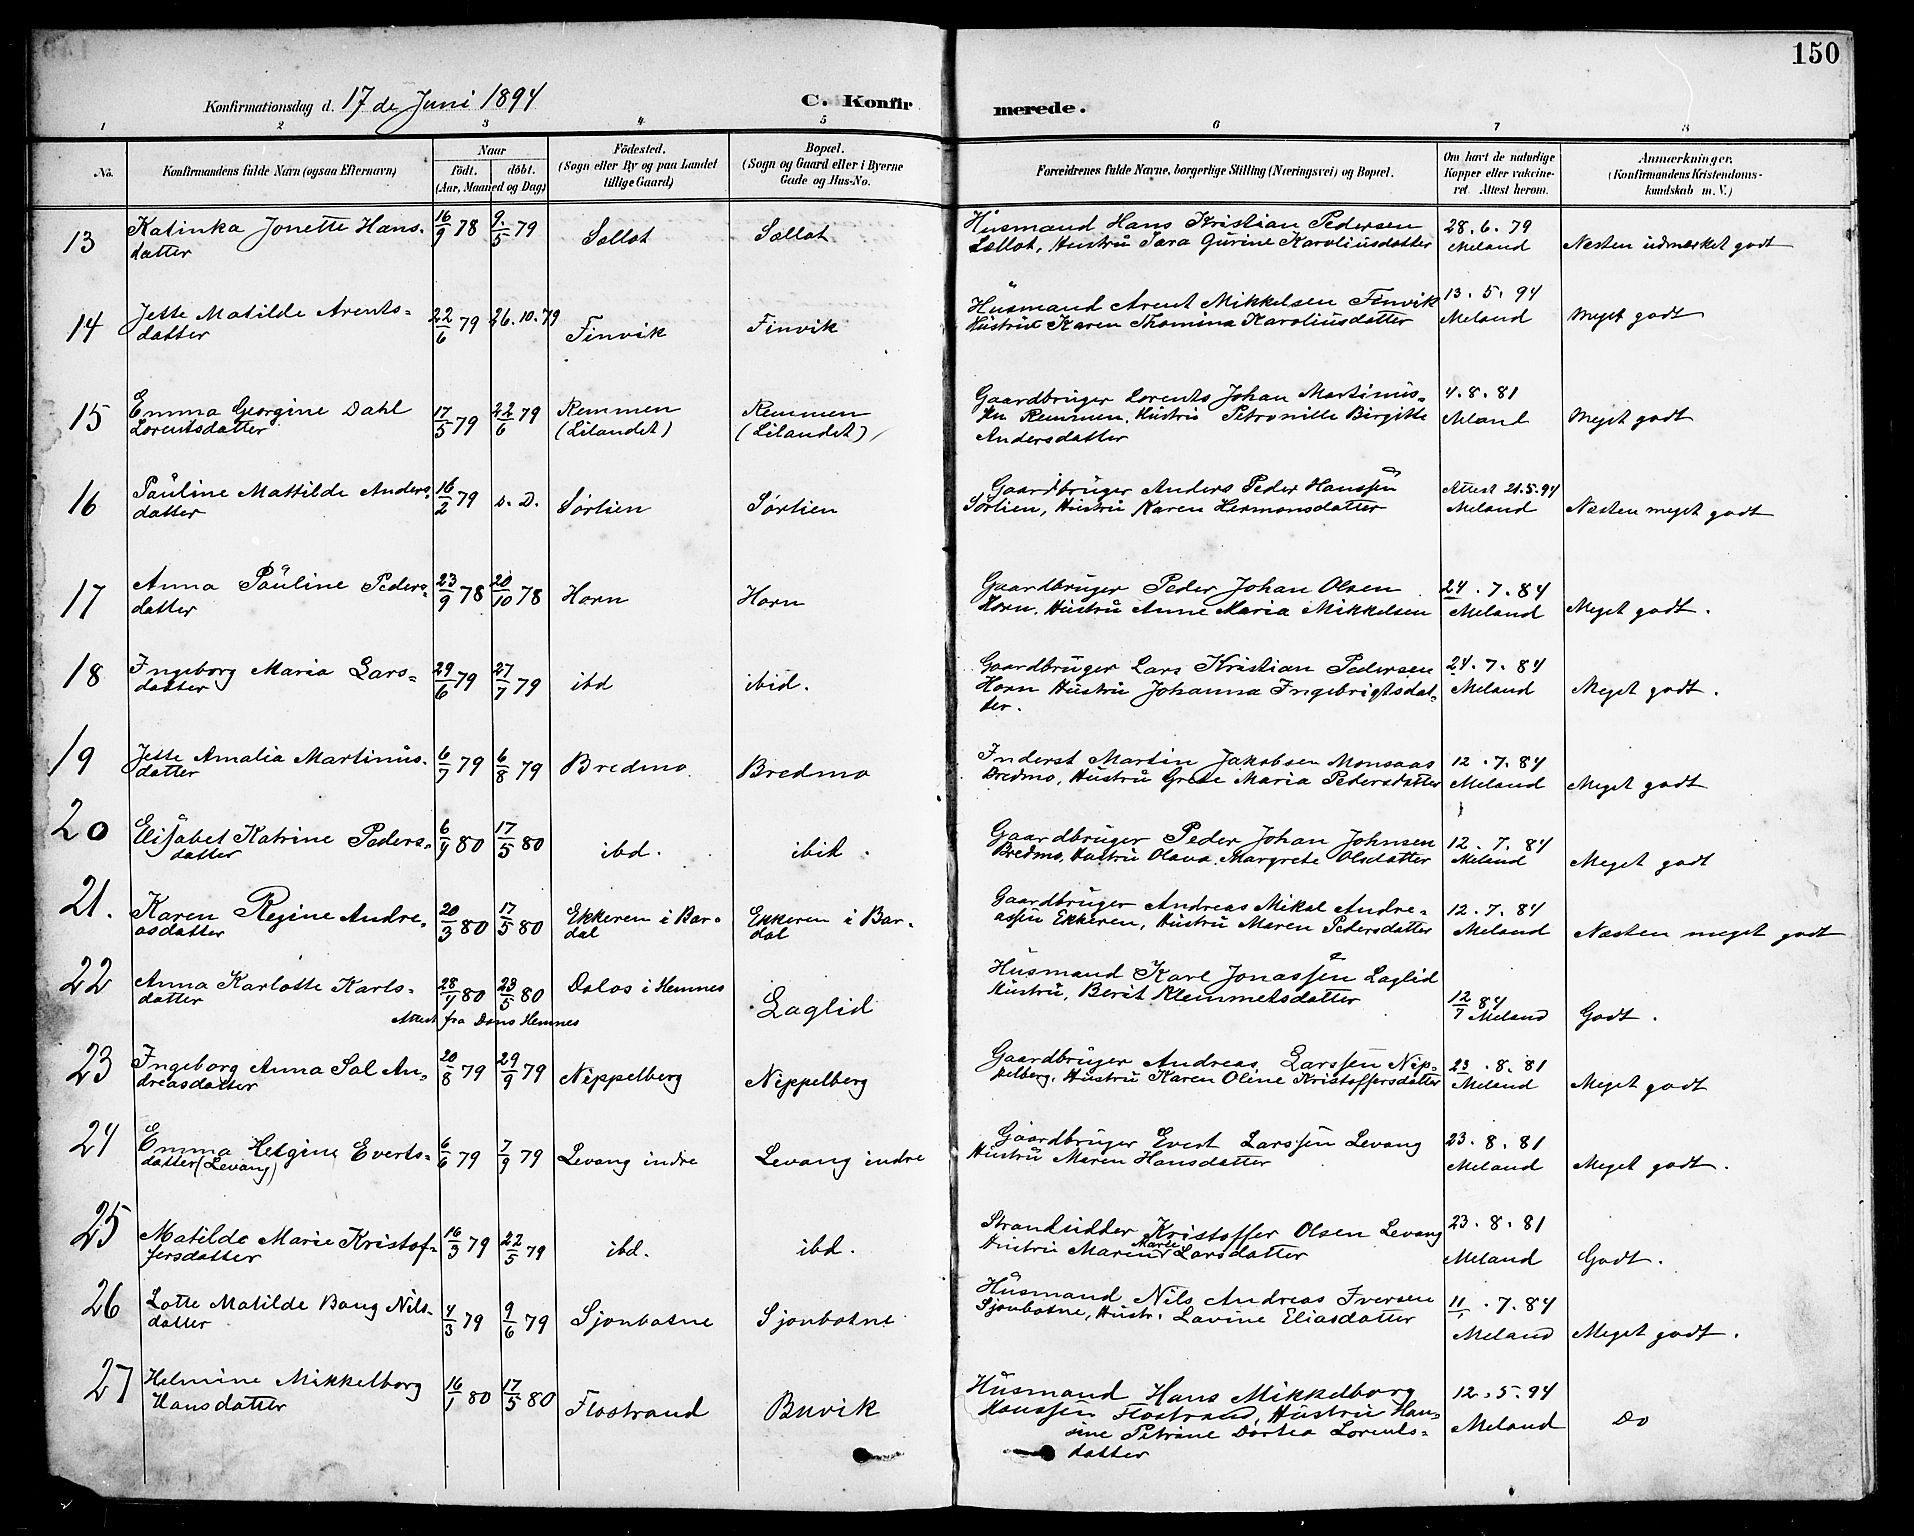 150
Konfirmationsdag d. 17 de Juni 1894 C. Konfirmerede.
1 2 3 4 5 6 7 8
No. Konfirmandens fulde Navn (ogsaa Efternavn) Naar födt. döbt. (Aar, Maaned og Dag) Födested. (Sogn eller By og paa Landet tillige Gaard) Bopæl. (Sogn og Gaard eller i Byerne Gade og Hus-No. Forældrenes fulde Navne, borgerlige Stilling (Næringsvei) og Bopæl. Om havt de naturlige Kopper eller vakcineret. Attest herom. Anmærkninger. (Konfirmandens Kristendomskundskab m. V.)
13 Katinka Jonette Hans- 16/9 78 9/5 79 Sællot Sællot Husmand Hans Kristian Pedersen 28.6.79
datter Sællot, Hustru Sara Gurine Karoliusdatter Meland Næsten udmærket godt
14 Jette Matilde Arents- 22/6 79 26.10.79 Finvik Finvik Husmand Arent Mikkelsen Finvik 13.5.94
datter Hustru Karen Thomina Karoliusdatter Meland Meget godt
15 Emma Georgine Dahl 17/5 79 22/6 79 Remmen Remmen Gaardbruger Lorents Johan Martinus- 4.8.81
Lorentsdatter (Lilandet) (Lilandet) sen Remmen, Hustru Petronille Birgitte Meland Meget godt
Andersdatter
16 Pauline Mattilde Anders- 16/2 79 D.D. Sørlien Sørlien Gaardbruger Anders Peder Hanssen Attest 21.5.94
datter Sørlien, Hustru Karen Hermansdatter Meland Næsten meget godt
17 Anna Pauline Peders- 23/9 78 20/10 78 Horn Horn Gaardbruger Peder Johan Olsen 24.7.84
datter Horn, Hustru Anne Maria Mikkelsen Meland Meget godt.
18 Ingeborg Maria Lars- 29/6 79 27/7 79 ibd ibid. Gaardbruger Lars Kristian Pedersen 24.7.84
datter Horn Hustru Johanna Ingebrigtsdat- Meland Meget godt.
ter.
19 Jette Amalia Martinus- 6/7 79 6/8 79 Bredmo Bredmo Inderst Martin Jakobsen Monsaas 12.7.84
datter Bredmo, Hustru Grete Maria Pedersdatter Meland Meget godt
20 Elisabet Katrine Peders- 6/4 80 17/5 80 ibd. ibid. Gaardbruger Peder Johan Johnsen 12.7.84
datter Bredmo, Hustru Olava Margrete Olsdatter Meland Meget godt
21. Karen Regine Andre- 20/3 80 17/5 80 Ekkeren i Bar- Ekkeren i Bar- Gaardbruger Andreas Mikal Andre- 12.7.84
asdatter dal dal assen Ekkeren, Hustru Maren Pedersdatter Meland Næsten meget godt
22 Anna Karlotte Karls- 28/4 80 23/5 80 Dalos i Hemnes Laglid Husmand Karl Jonassen Laglid 12/7 84
datter Hustru, Berit Klemmetsdatter Meland Godt.
Attest fra Dons Hemnes
23 Ingeborg Anna Sal An- 20/8 79 29/9 79 Neppelberg Neppelberg Gaardbruger Andreas Larssen Nep- 23.8.81
dreasdatter pelberg, Hustru Karen Oline Kristoffersdatter Meland Meget godt
24 Emma Helgine Everts- 6/6 79 7/9 79 Levang indre Levang indre Gaardbruger Evert Larssen Levang 23.8.81
datter (Levang) Hustru Maren Hansdatter Meland Meget godt.
25 Matilde Marie Kristof- 16/3 79 22/5 79 ibd. ibd. Strandsidder Kristoffer Olsen Levang 23.8.81
fersdatter Hustru Maren Marie Larsdatter Meland Godt.
26 Lotte Matilde Bang Nils- 4/3 79 9/6 79 Sjonbotne Sjonbotne Husmand Nils Andreas Iversen 11.7.84
datter Sjonbotne, Hustr. Lavine Eliasdatter Meland Meget godt.
27 Helmine Mikkelborg 16/1 80 17/5 80 Flostrand Buvik Husmand Hans Mikkelborg 12.5.94
Hansdatter Hanssen Flostrand, Hustru Han- Meland Do
sine Petrine Dortea Lorents-
datter